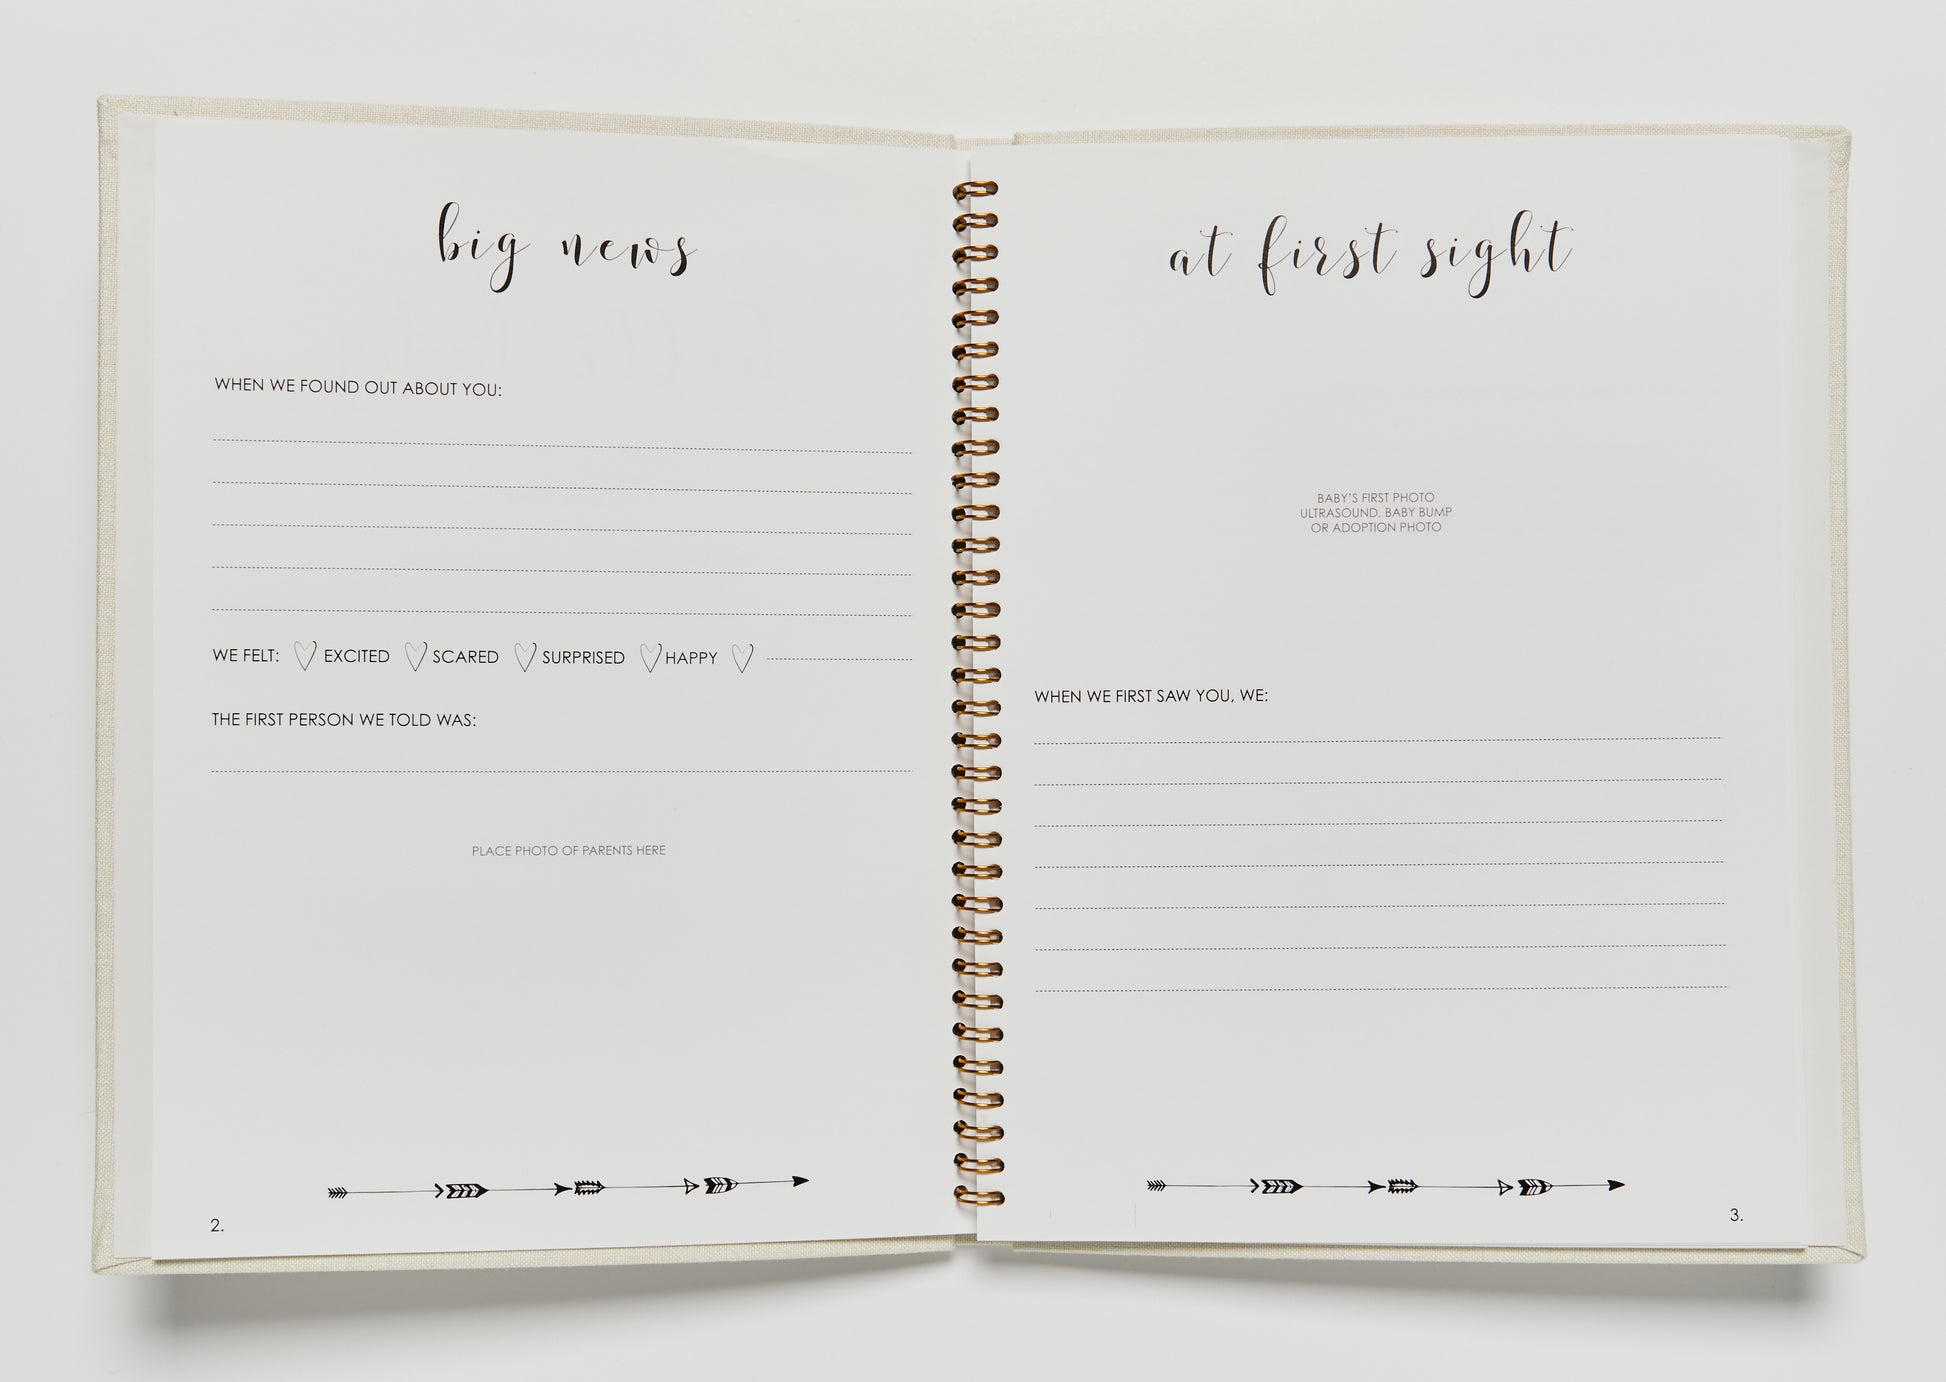 big news
WHEN WE FOUND OUT ABOUT YOU:
WE FELT: EXCITED SCARED SURPRISED HAPPY
THE FIRST PERSON WE TOLD WAS:
PLACE PHOTO OF PARENTS HERE
2.
at first sight
BABY'S FIRST PHOTO
ULTRASOUND, BABY BUMP
OR ADOPTION PHOTO
WHEN WE FIRST SAW YOU, WE:
3.